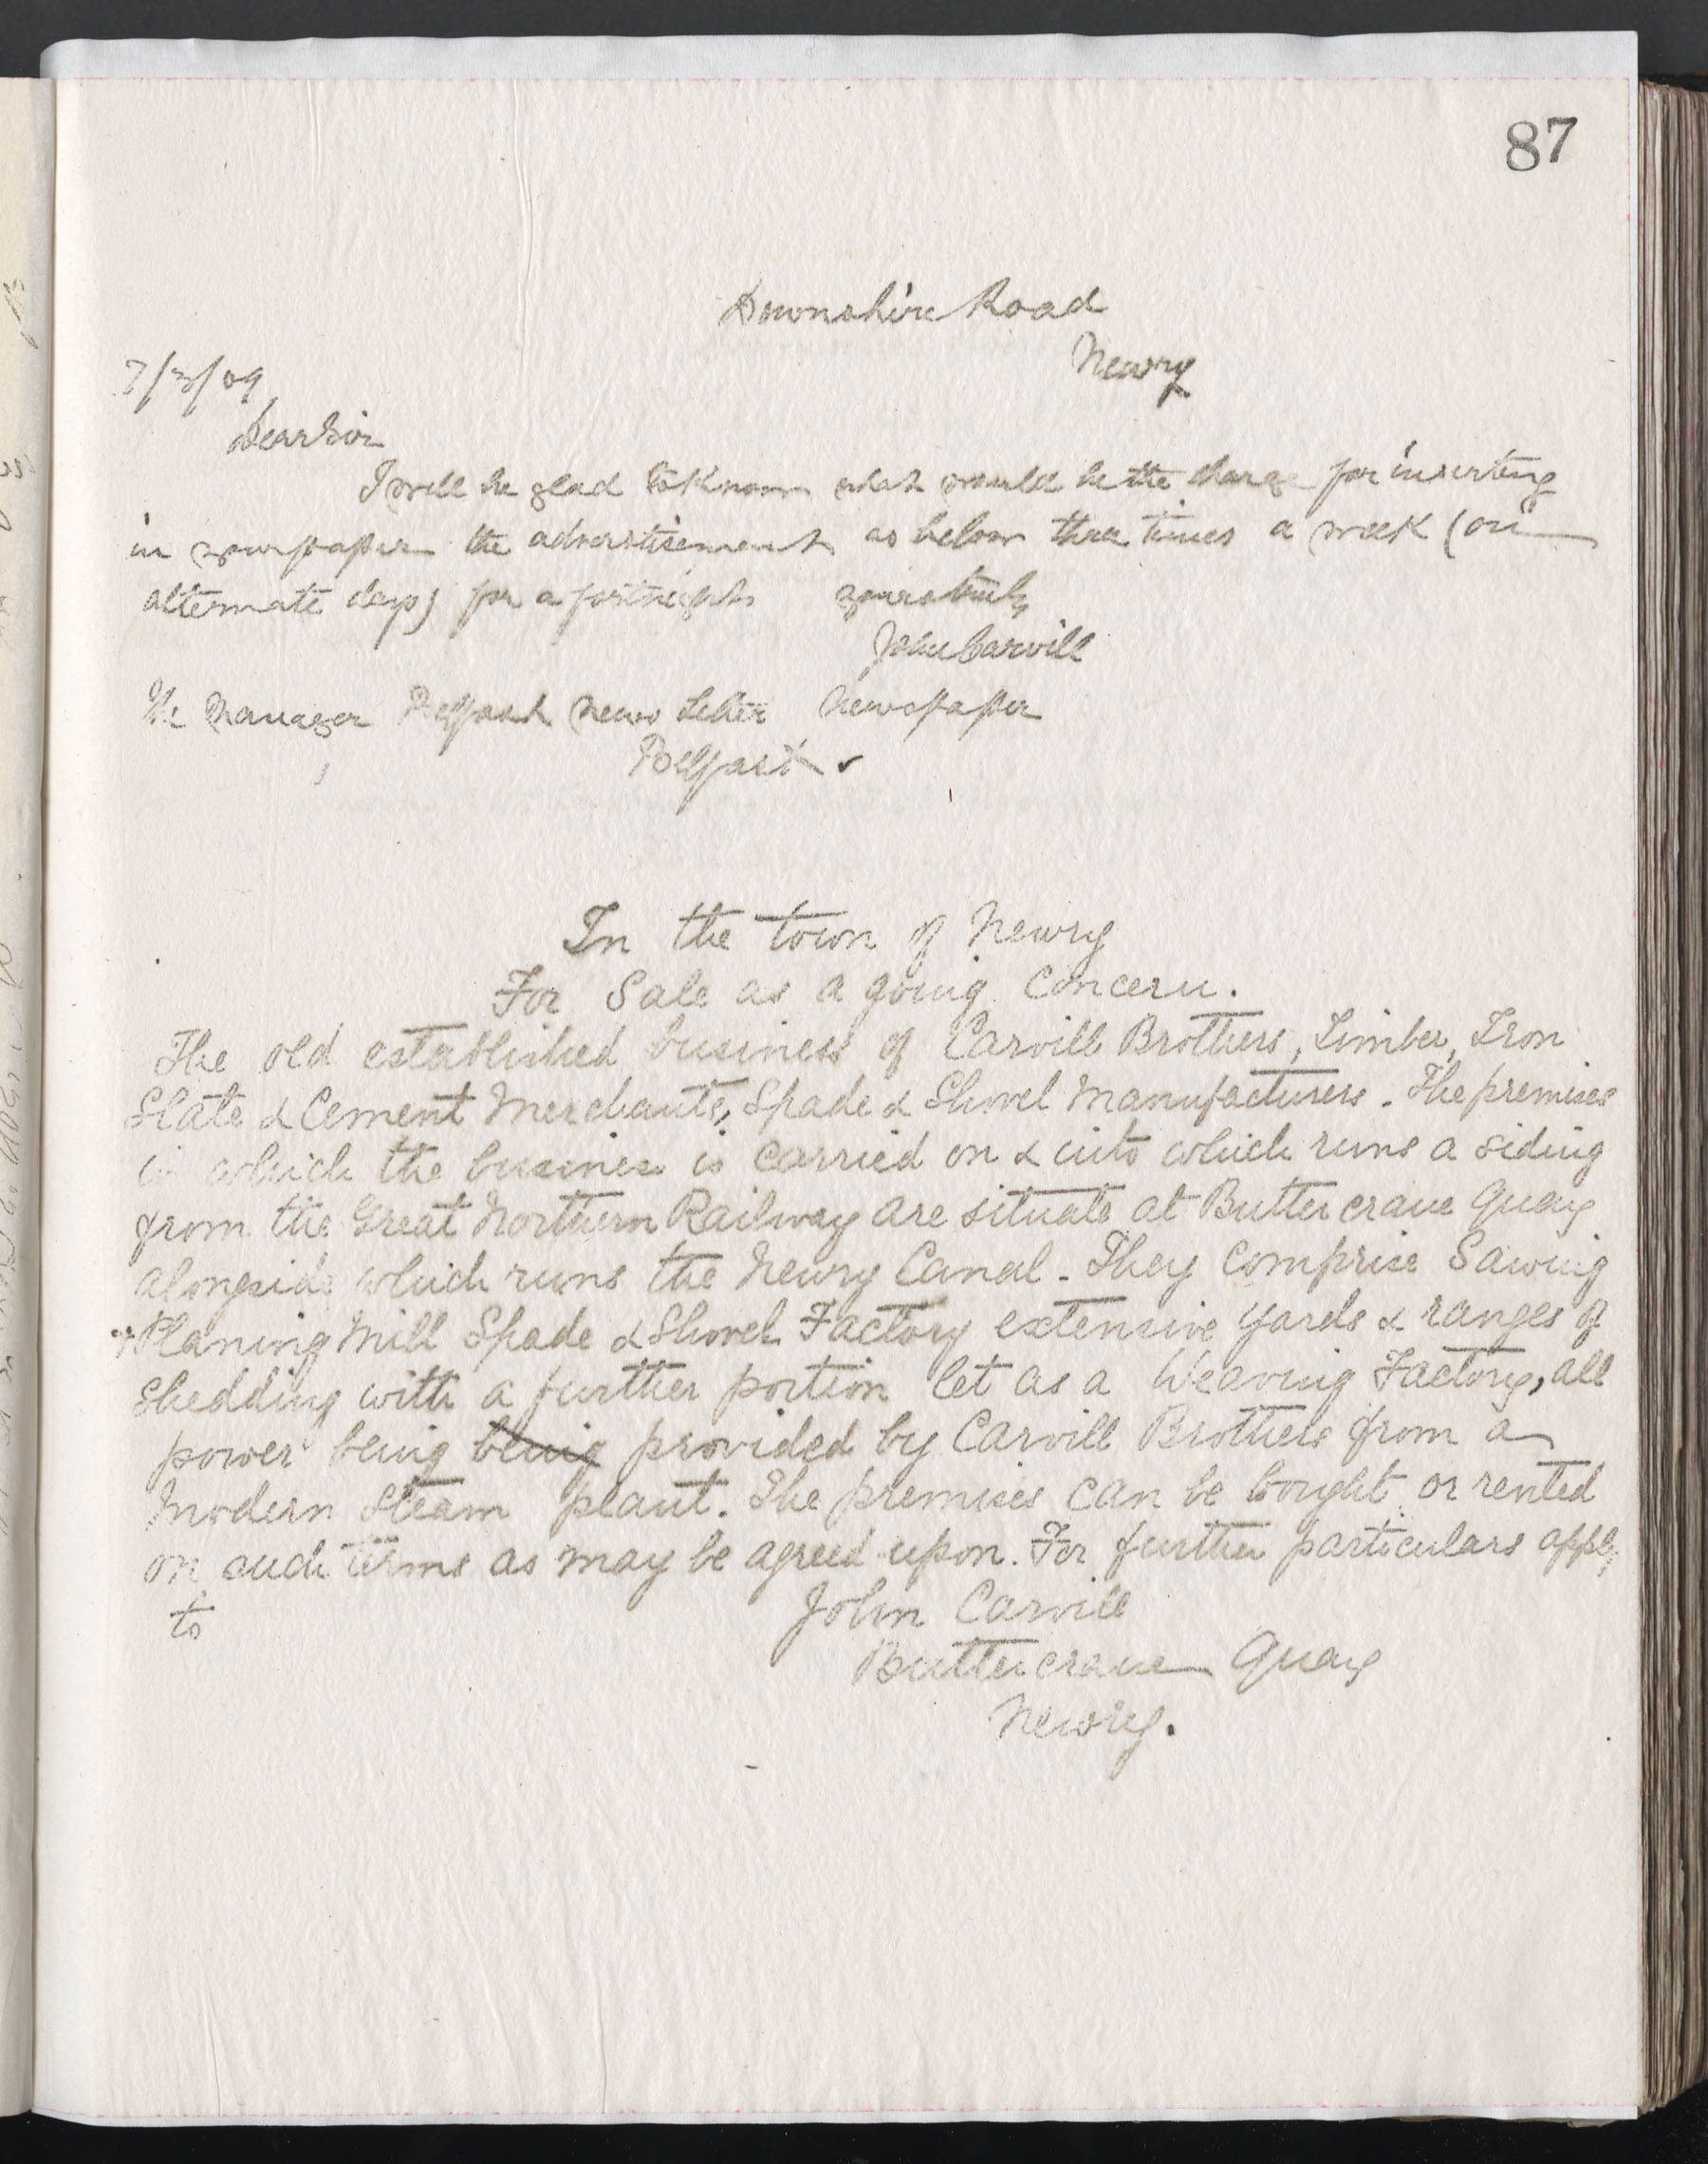 87
Downshire Road
Newry
7/3/09
Dear Sir
I will be glad to Know what would be the charge for inserting
in your paper the advertisement as below three times a week (on
alternate days) for a fortnight yours truly
John Carvill
The Manager Belfast News Letter Newspaper
Belfast
In the town of Newry
For Sale as a going Concern.
The old established business of Carvill Brothers, Timber, Iron
Slate & Cement Merchants, Spade & Shovel Manufacturers. The premises
in which the business is carried on & into which runs a siding
from the Great Northern Railway are situate at Buttercrane Quay
alongside which runs the Newry Canal. They comprise Sawing
& Planing Mill Spade & Shovel Factory extensive yards & ranges of
Shedding with a further portion let as a Weaving Factory, all
power being being provided by Carvill Brothers from a
Modern Steam plant. The premises can be bought or rented
on such terms as may be agreed upon. For further particulars apply
to
John Carvill
Buttercrane Quay
Newry.